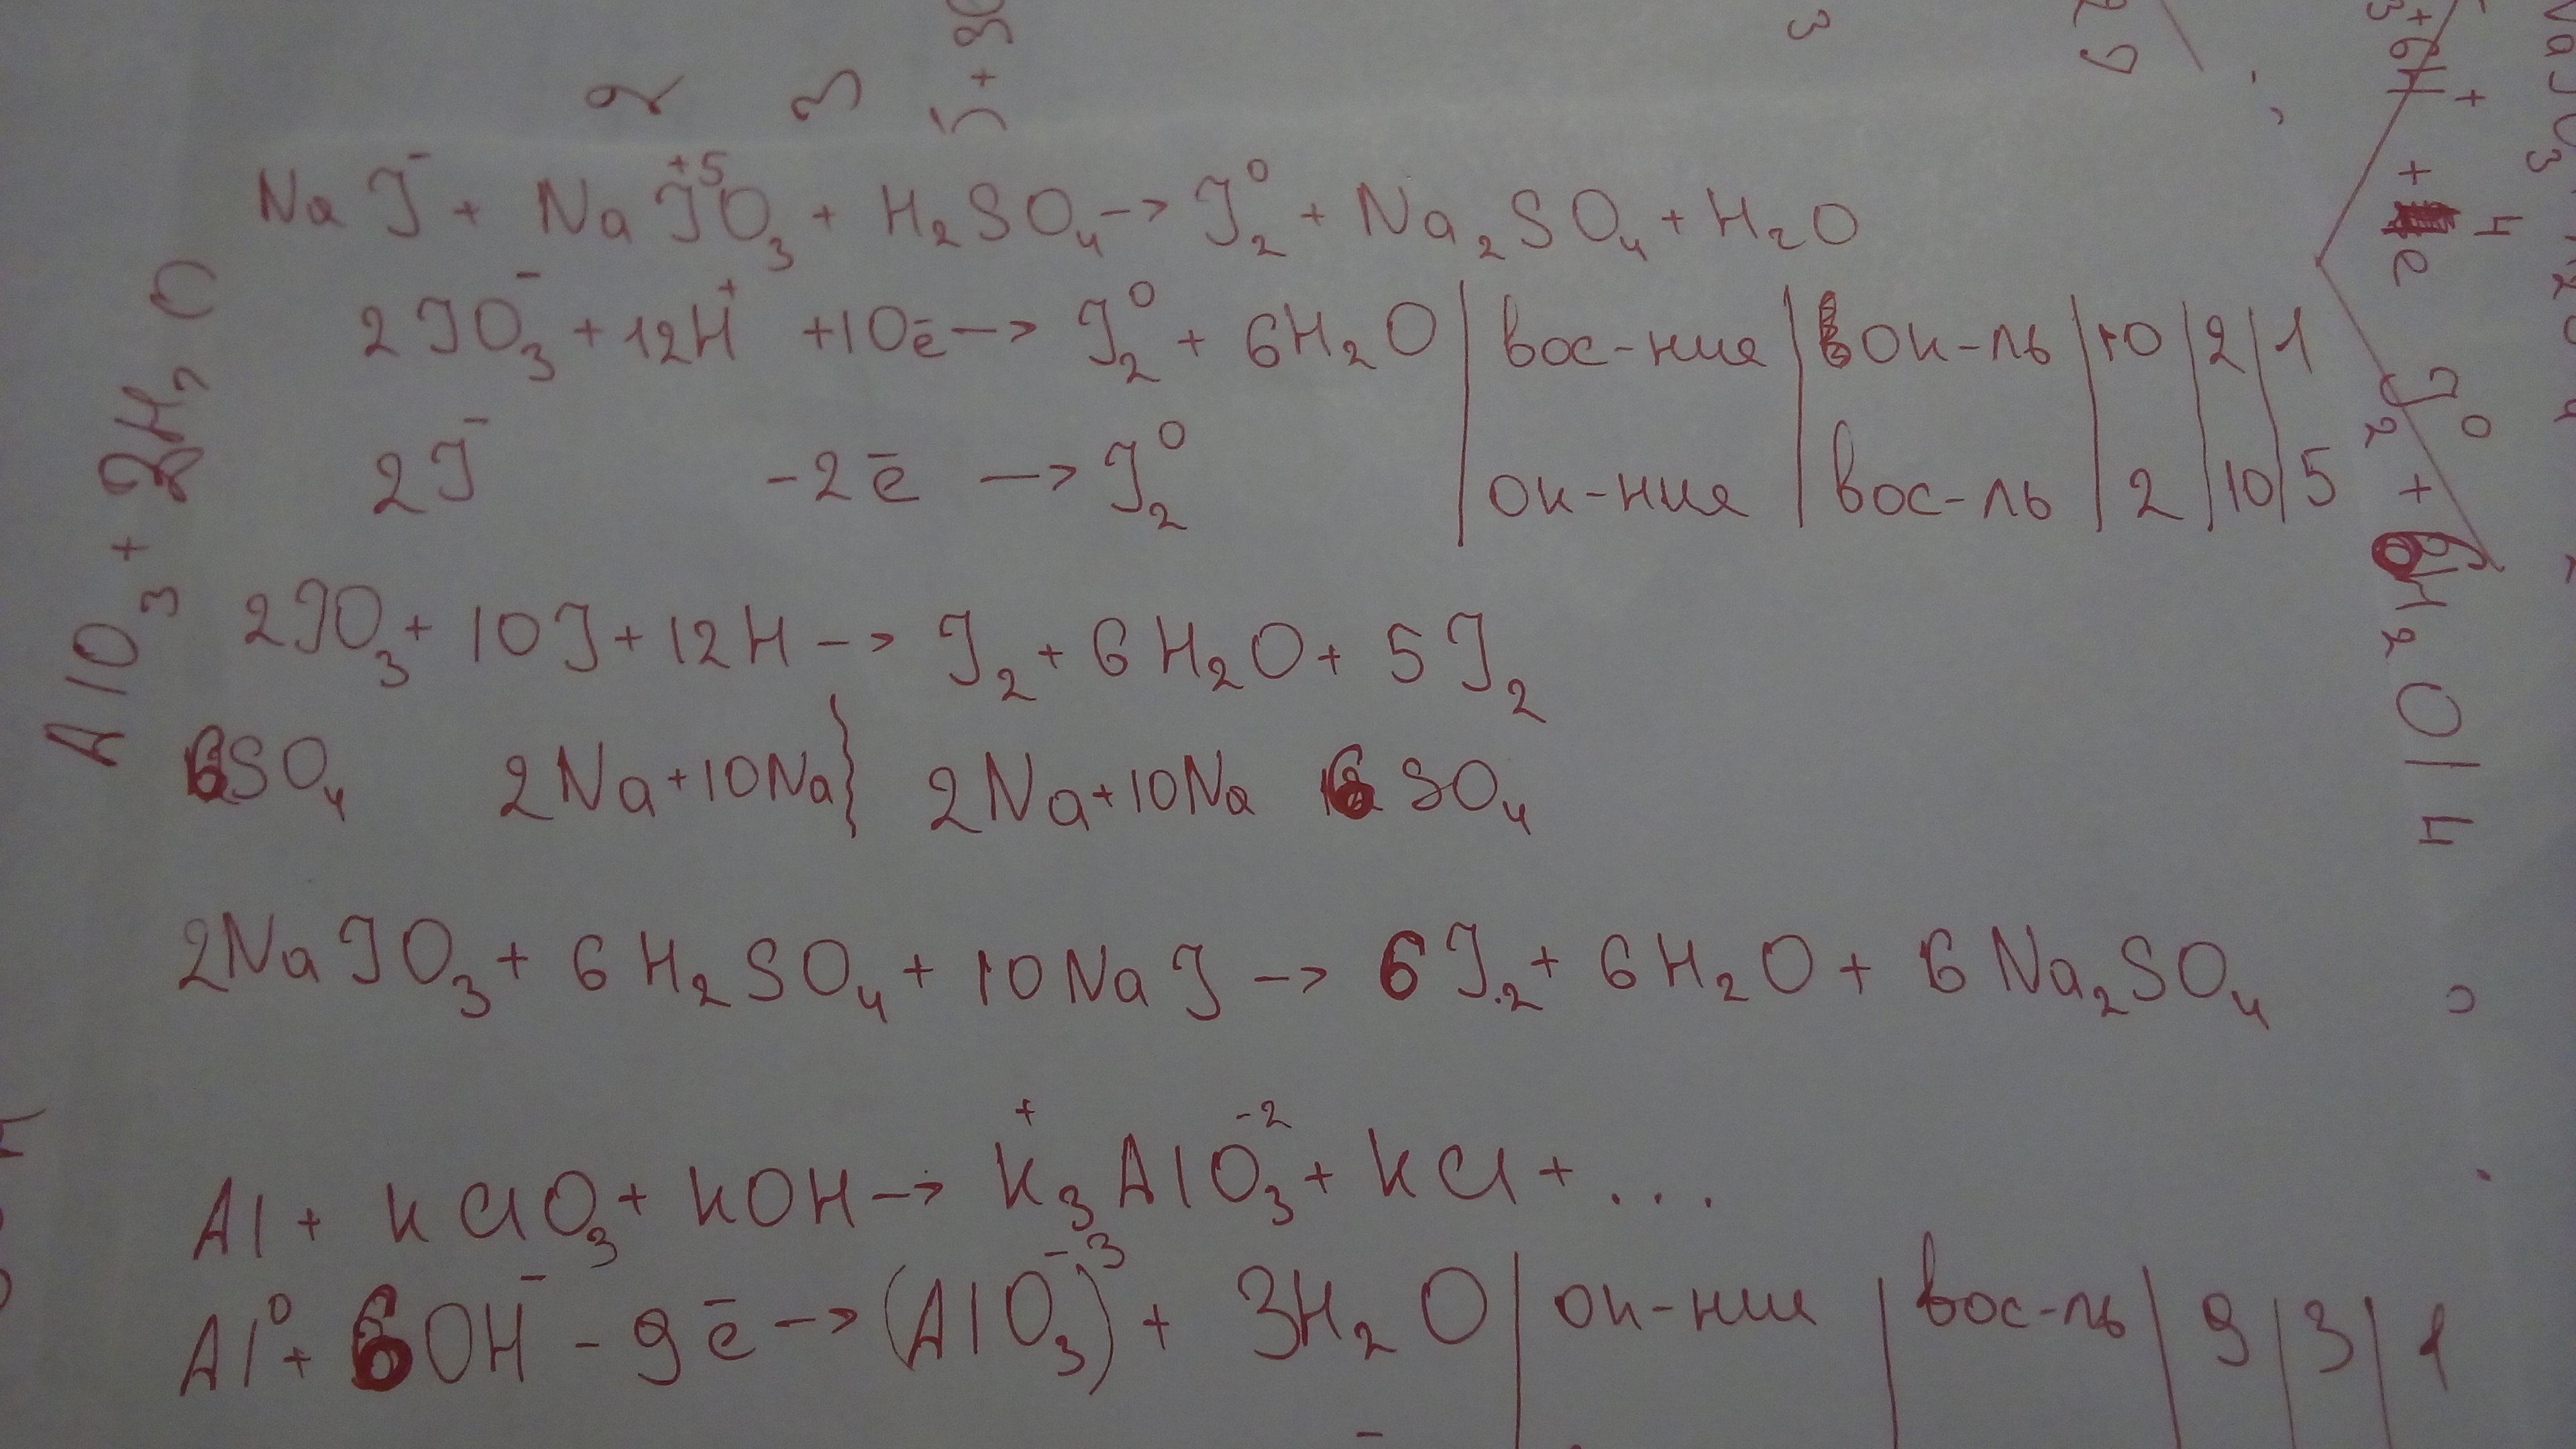 NaJ⁻ + NaJ⁺⁵O₃ + H₂SO₄ → J₂⁰ + Na₂SO₄ + H₂O
2JO₃⁻ + 12H⁺ + 10ē → J₂⁰ + 6H₂O | вос-ние | ок-ль | 10 | 2 | 1
2J⁻ - 2ē → J₂⁰ | ок-ние | вос-ль | 2 | 10 | 5
2JO₃ + 10J + 12H → J₂ + 6H₂O + 5J₂
6SO₄ 2Na + 10Na } 2Na + 10Na 6SO₄
2NaJO₃ + 6H₂SO₄ + 10NaJ → 6J₂ + 6H₂O + 6Na₂SO₄
Al + KClO₃ + KOH → K₃⁺AlO₃⁻² + KCl + ...
Al⁰ + 6OH⁻ - 9ē → (AlO₃)⁻³ + 3H₂O | ок-ние | вос-ль | 9 | 3 | 1